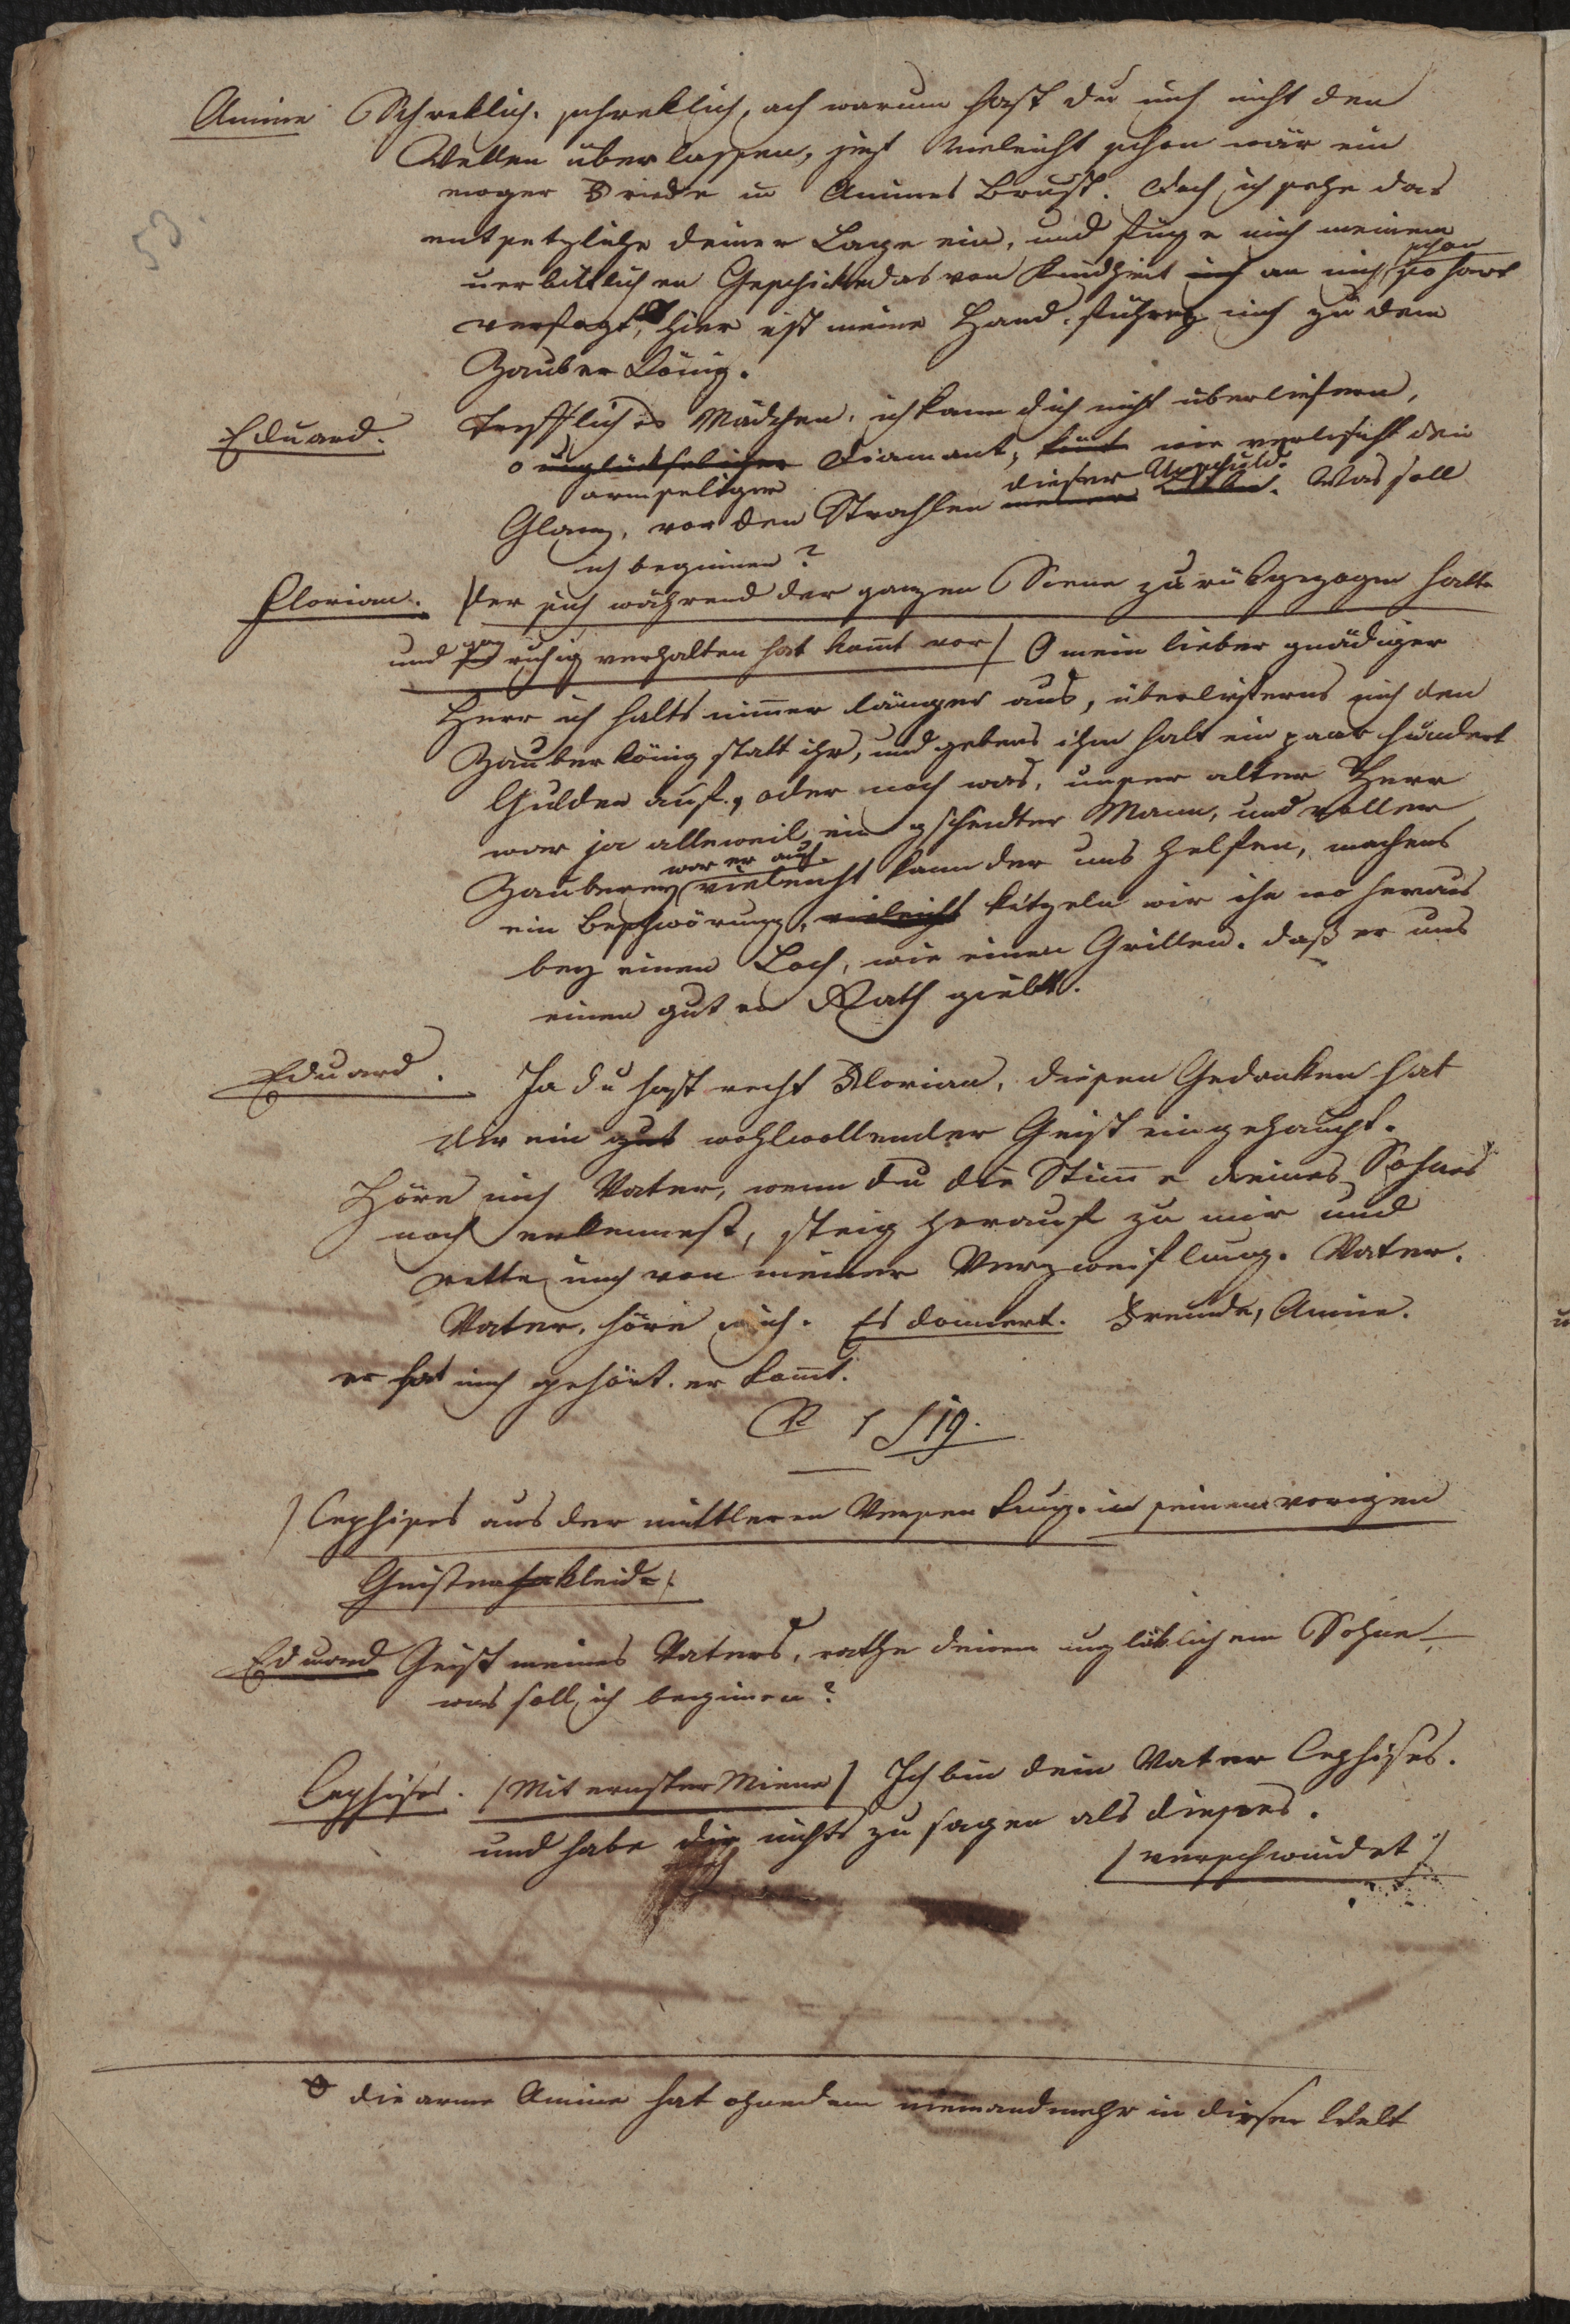 53.
Amine Schreklich, schreklich, ach warum hast du mich nicht den
Wellen überlassen, jezt vieleicht schon wär ein
ewger Friede in Amines Brust. Doch ich sehe das
entsetzliche deiner Lage ein, und füge mich meinem
schon
unerbittlichen Geschicke das von Kindheit mich an mich so hart
verfolgt, hier ist meine Hand, führe mich zu dem
Zauber König.
Eduard. Treffliches Mädchen, ich kann dich nicht überliefern,
o unglückseliger Diamant, wie verlischt dein
armseliger dieser Unschuld.
Glanz, vor den Strahlen meiner. Was soll
ich beginnen?
Florian. /der sich während der ganzen Scene zurükgezogen hatte
und ganz ruhig verhalten hat kom̄t vor/ O mein lieber gnädiger
Herr ich halts nim̄er länger aus, überliferns mich den
Zauberkönig statt ihr, und gebens ihm halt ein paar hundert
Gulden auf, oder noch was, unser alter Herr
war ja alleweil ein gscheidter Mann, und voller
war er auch
Zauberey vieleicht kann der uns helfen, machens
ein Beschwörung, vieleicht kitzeln wir ihn wo heraus
bey einen Loch, wie einen Grillen. daß er uns
einen guten Rath giebt.
Eduard. Ja du hast recht Florian, diesen Gedanken hat
dir ein gut wohlwollender Geist eingehaucht.
Höre mich Vater, wenn du die Stim̄e deines Sohnes
noch erkennest, steig herauf zu mir und
rette mich von meiner Verzweiflung. Vater.
Vater, höre mich. Es donnert. Freunde, Amine.
er hat mich gehört. er kom̄t.
/Cephises aus der mittleren Versenkung. in seinem vorigen
Geisterkleide/.
Eduard Geist meines Vaters, rathe deinem unglüklichem Sohne,
was soll ich beginnen?
Cephises. /Mit ernster Miene/ Ich bin dein Vater Cephises.
und habe dir nichts zu sagen als dieses.
/verschwindet/
die arme Amine hat ohnedem niemand mehr in dieser Welt